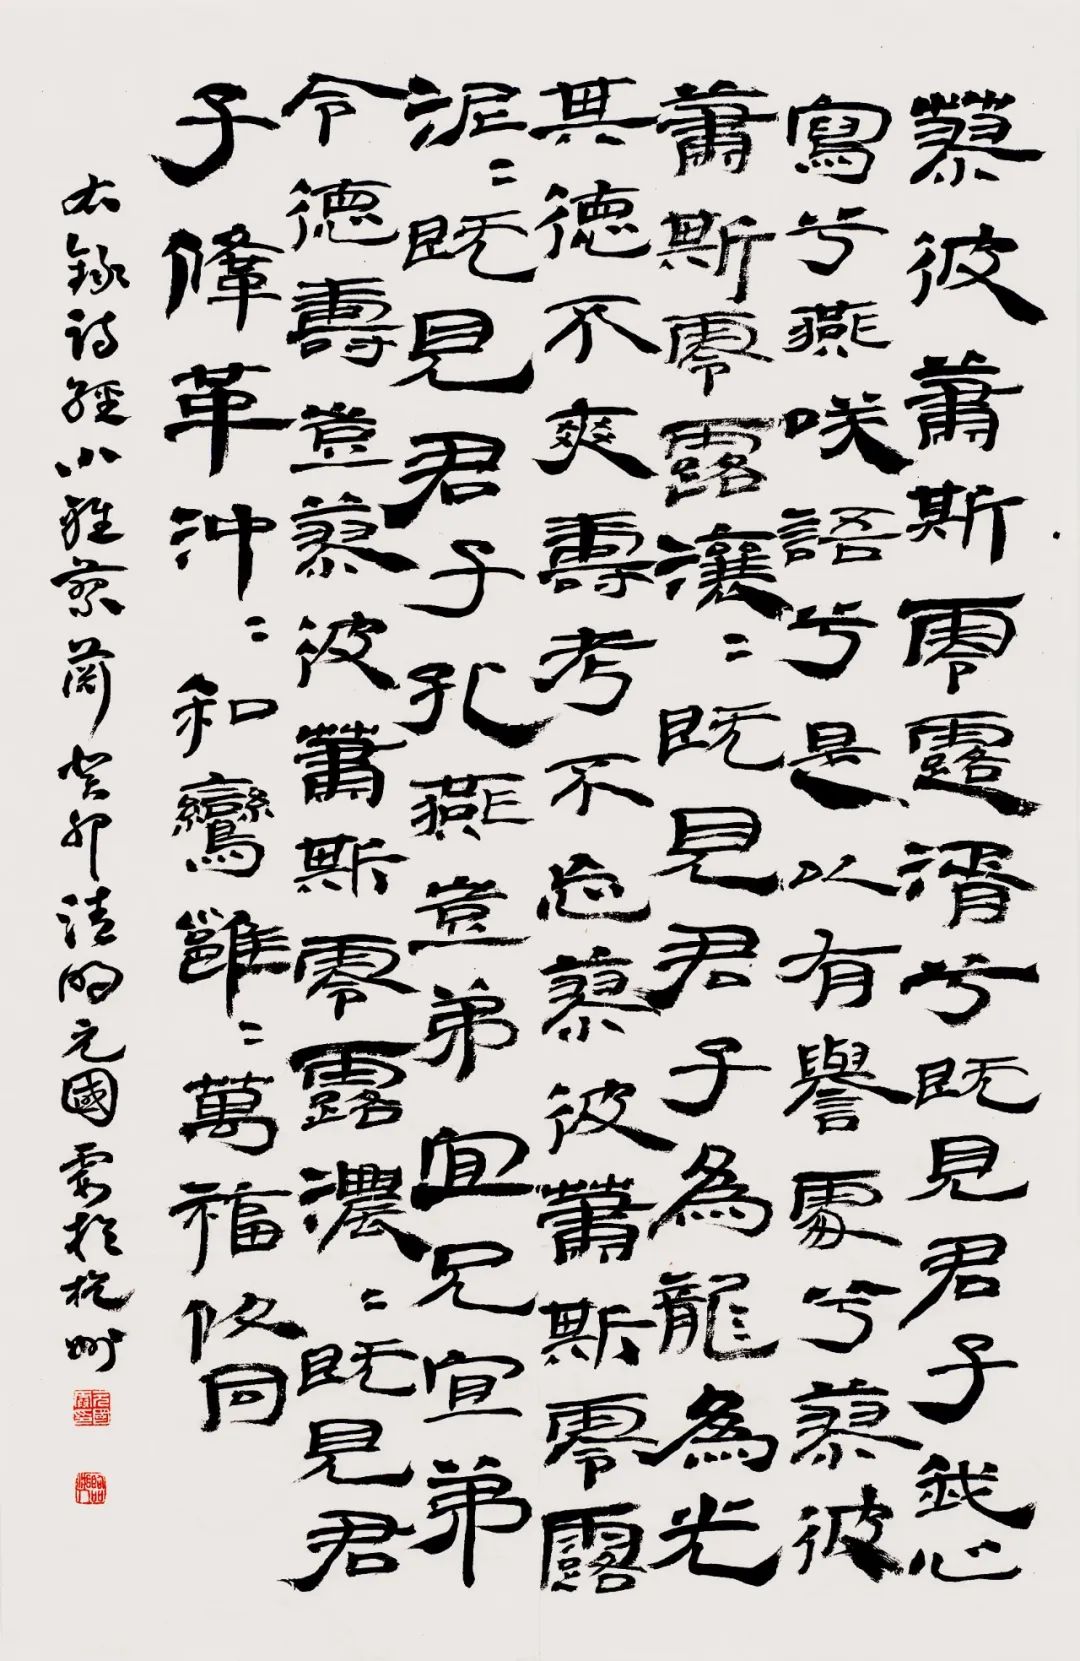 蓼彼蕭斯零露湑兮既見君子我心
寫兮燕咲語兮是以有譽處兮蓼彼
蕭斯零露瀼〻既見君子為龍為光
其德不爽壽考不忘蓼彼蕭斯零露
泥〻既見君子孔燕豈弟宜兄宜弟
令德壽豈蓼彼蕭斯零露濃〻既見君
子鞗革沖〻和鸞雝〻萬福攸同
右錄詩經小雅蓼蕭癸卯清明元國於杭州